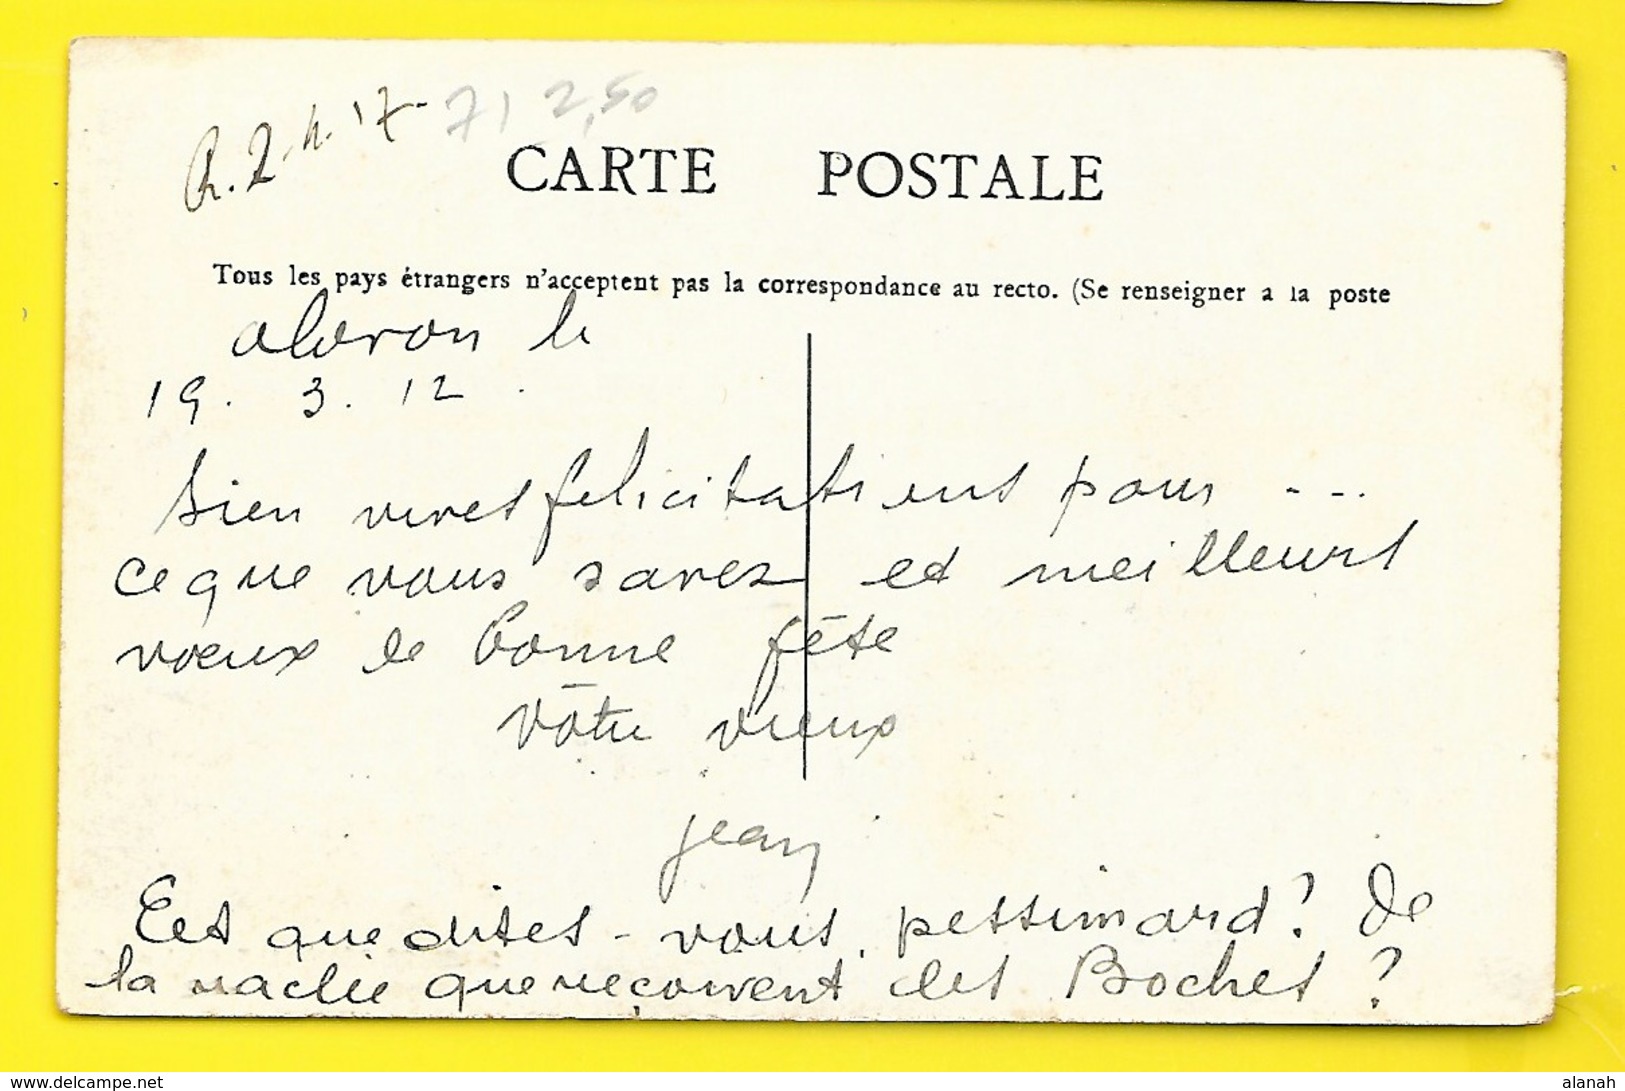 R. 2-4-17- 71 2,50
CARTE POSTALE
Tous les pays étrangers n'acceptent pas la correspondance au recto. (Se renseigner a la poste
oloron le
19. 3. 12.
bien vives felicitations pour ---
ce que vous savez et meilleurs
voeux de bonne fête
Vôtre vieux
jean
Eet que dites-vous, pessimard? De
la raclée que reçoivent les Boches?
www.delcampe.net
alanah